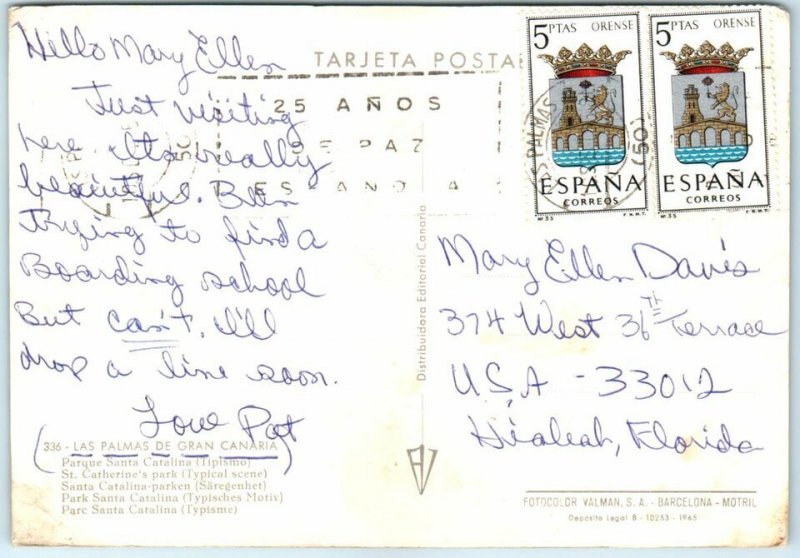 Hello Mary Ellen
Just visiting
here. Its really
beautiful. Been
trying to find a
Boarding school
But can't. I'll
drop a line soon.
Love Pat
336 - LAS PALMAS DE GRAN CANARIA
Parque Santa Catalina (Tipismo)
St. Catherine's park (Typical scene)
Santa Catalina-parken (Säregenhet)
Park Santa Catalina (Typisches Motiv)
Parc Santa Catalina (Typisme)
TARJETA POSTAL
25 AÑOS
DE PAZ
ESPAÑOLA
Distribuidora Editorial Canaria
5 PTAS ORENSE
ESPAÑA
CORREOS
Nº 35 F.N.M.T.
5 PTAS ORENSE
ESPAÑA
CORREOS
Nº 35 F.N.M.T.
S PALMAS
(50)
Mary Ellen Davis
374 West 36TH Terrace
U.S.A - 33012
Hialeah, Florida
FOTOCOLOR VALMAN, S. A. - BARCELONA - MOTRIL
Depósito Legal B - 10253 - 1965